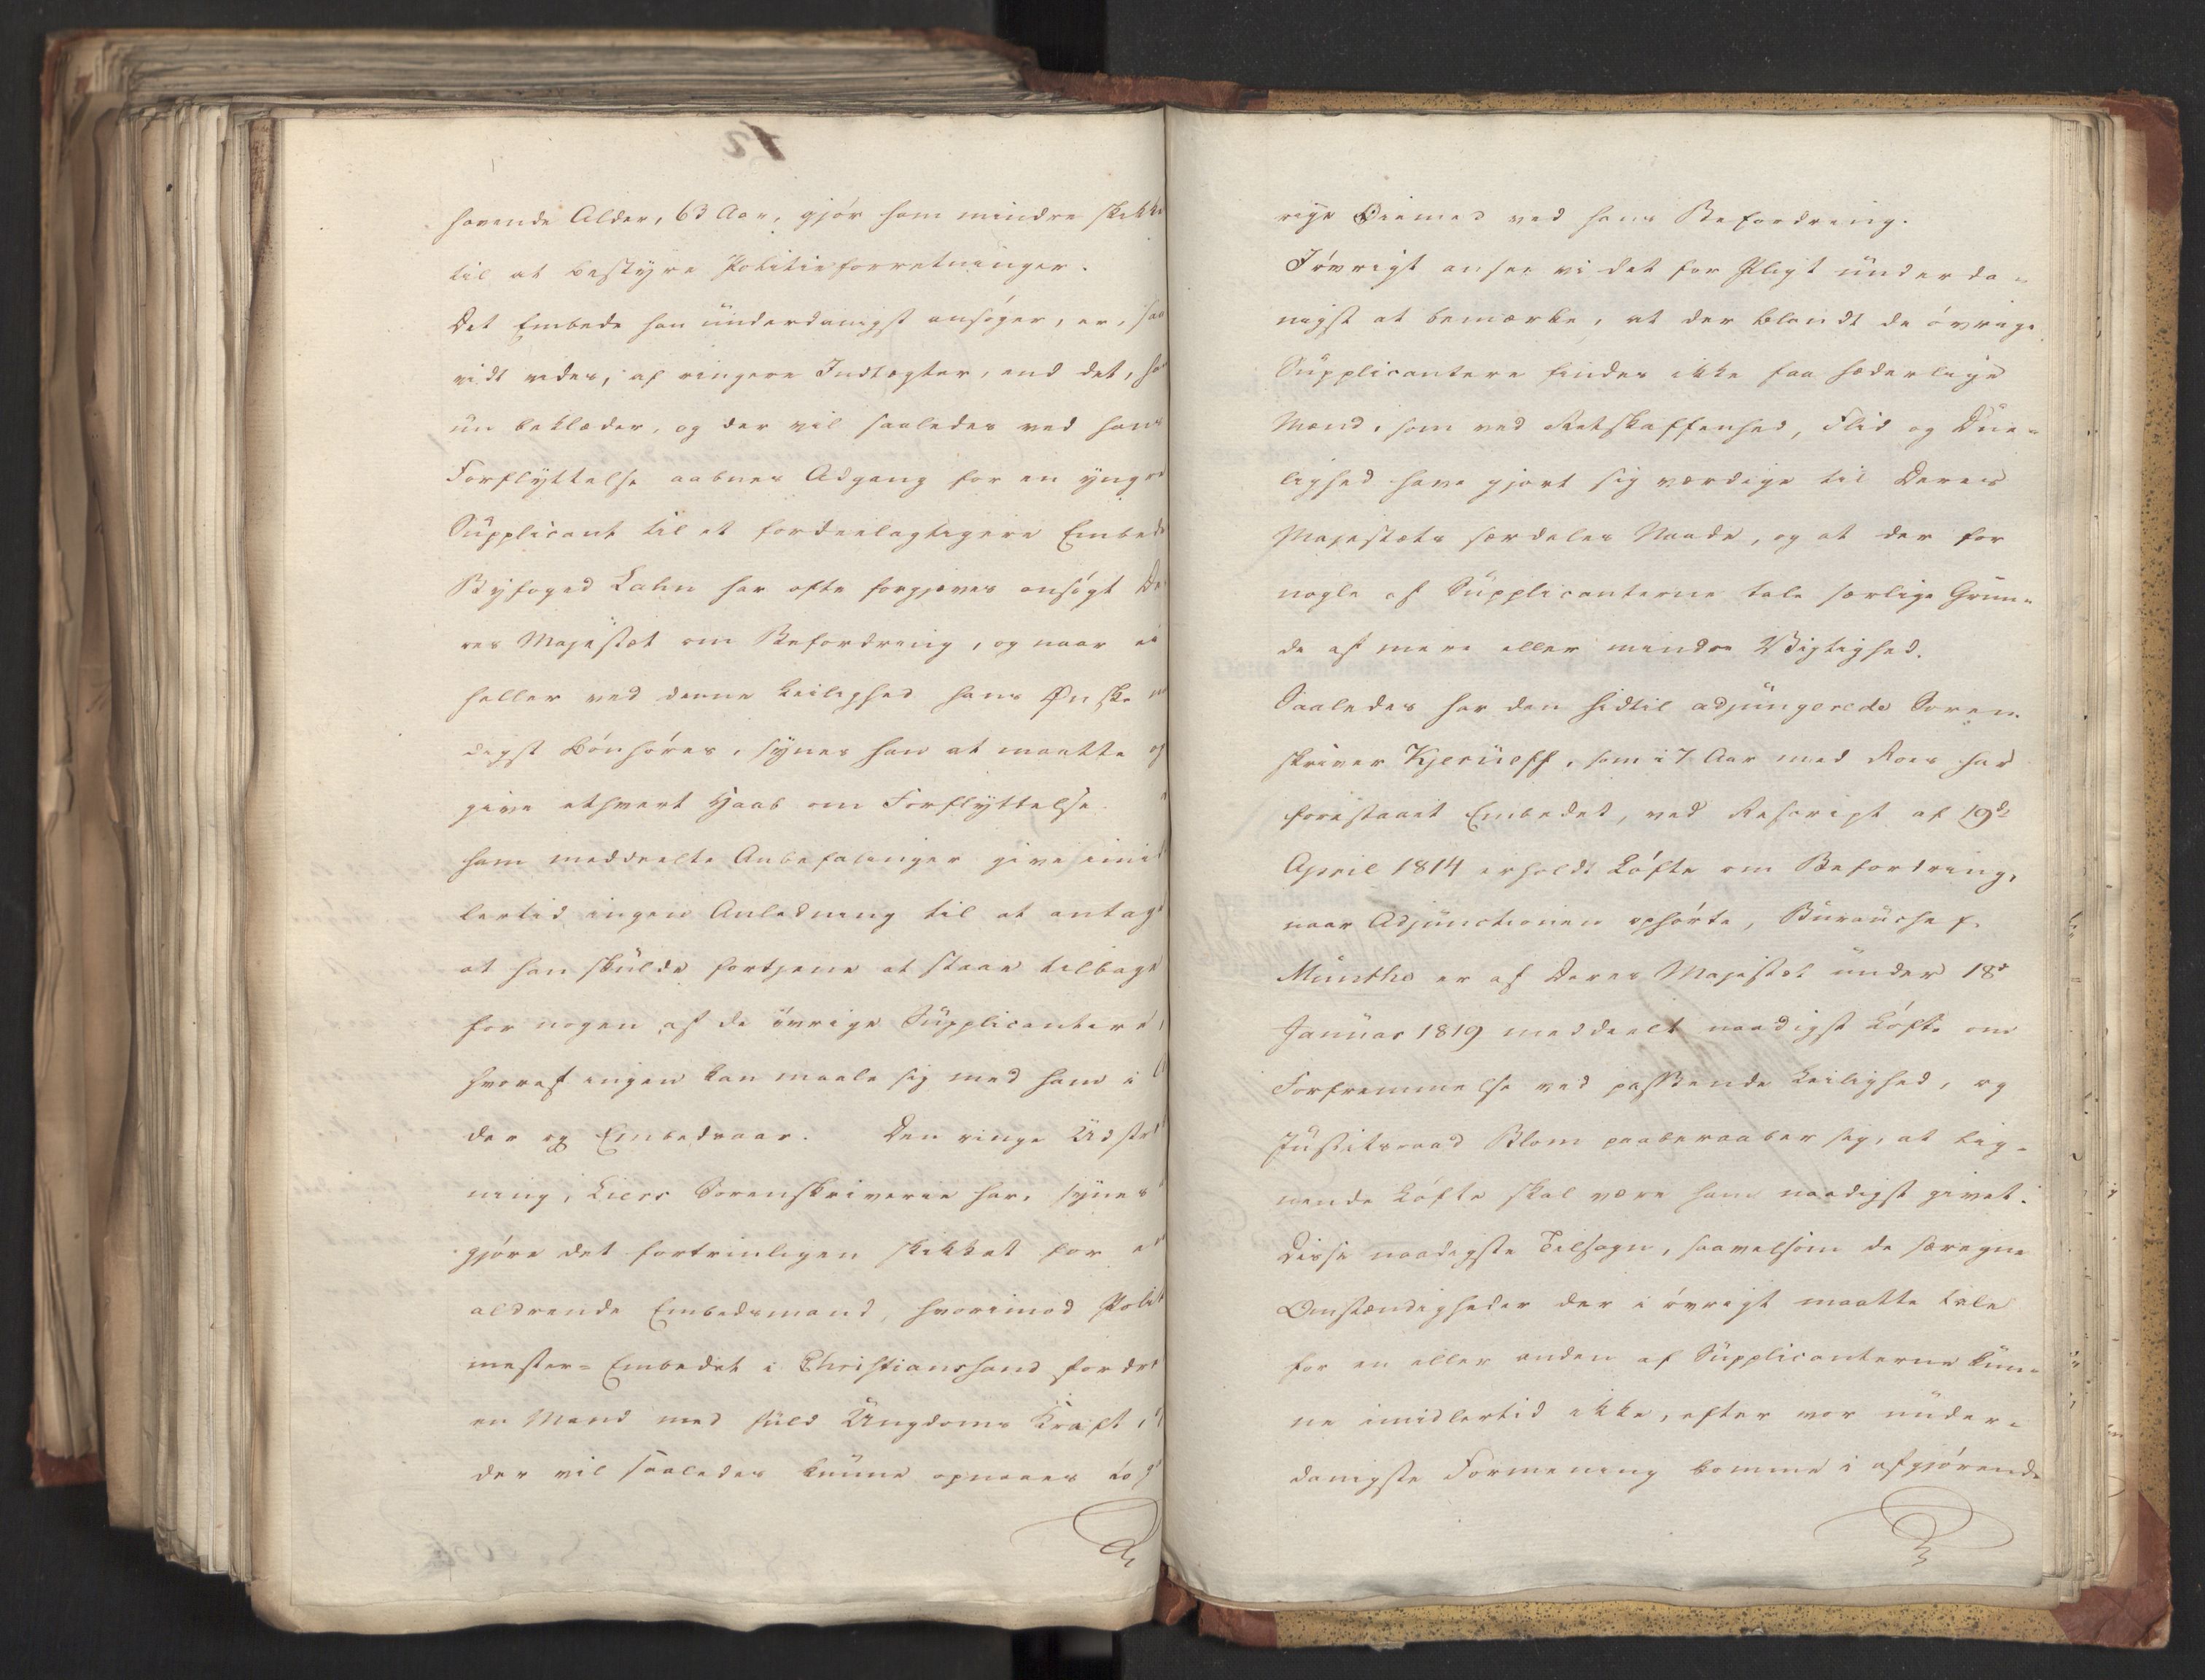 havende Alder, 63 Aar, gjør ham mindre skikke
til at bestyre Politieforretninger.
Det Embede han underdanigst ansøger, er, saa
vidt vides, af ringere Indtægter, end det, ha
nu beklæder, og der vil saaledes ved hans
Forflyttelse aabnes Adgang for en yngre
Supplicant til et fordeelagtigere Embede
Byfoged Lahn har ofte forgjæves ansøgt De
res Majestæt om Befordring, og naar ei
heller ved denne Leilighed hans Ønske
digst bønhøres, synes han at maatte op
give ethvert Haab om Forflyttelse.
ham meddeelte Anbefalinger give imid
lertid ingen Anledning til at antage
at han skulde fortjene at staae tilbage
for nogen af de øvrige Supplicantere,
hvoraf ingen kan maale sig med ham i Al
der og Embedsaar. Den ringe Udstræk
ning, Liers Sorenskriverie har, synes
gjøre det fortrinligen skikket for en
aldrende Embedsmand, hvorimod Polit
mester-Embedet i Christianssand fordre
en Mand med fuld Ungdoms Kraft,
der vil saaledes kunne opnaaes tog
rige Øiemed ved hans Befordring.
Iøvrigt ansee vi det for Pligt underda-
nigst at bemærke, at der blandt de øvrige
Supplicantere findes ikke faa hæderlige
Mænd, som ved Retskaffenhed, Flid og Due-
lighed have gjort sig værdige til Deres
Majestæts særdeles Naade, og at der for
nogle af Supplicanterne tale særlige Grun-
de af mere eller mindre Vigtighed.
Saaledes har den hidtil adjungerede Soren-
skriver Kjerueff, som i 7 Aar med Roes har
forestaaet Embedet, ved Rescript af 19de
April 1814 erholdt Løfte om Befordring,
naar Adjunctionen ophørte, Bureauchef
Munthe er af Deres Majestæt under 18d
Januar 1819 meddeelt naadigst Løfte om
Forfremmelse ved passende Leilighed, og
Justitsraad Blom paaberaaber sig, at lig-
nende Løfte skal være ham naadigst givet.
Disse naadigste Tilsagn, saavelsom de særegne
Omstændigheder der i øvrigt maatte tale
for en eller anden af Supplicanterne kun-
ne imidlertid ikke, efter vor under-
danigste Formening komme i afgjørende